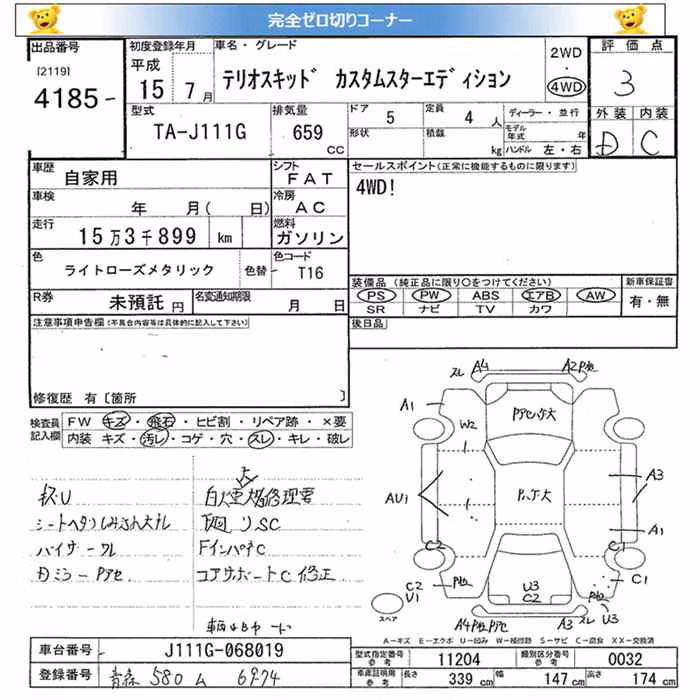 完全ゼロ切りコーナー
出品番号
[2119]
4185-
初度登録年月
平成
15年 7月
車名・グレード
テリオスキッド カスタムスターエディション
2WD
・
4WD
評価点
3
外装 内装
D C
型式
TA-J111G
排気量
659 CC
ドア 5
形状
定員 4 人
積載 kg
ディーラー・並行
モデル年式 年
ハンドル 左・右
車歴
自家用
シフト
FAT
車検
年 月( 日)
冷房
AC
走行
15万3千899 km
燃料
ガソリン
色
ライトローズメタリック
色替
色コード
- T16
R券
未預託 円
名変通知期限
月 日
セールスポイント(正常に機能するものに限ります)
4WD!
装備品(純正品に限り○をつけてください)
PS PW ABS エアB AW
SR ナビ TV カワ
新車保証書
有・無
後日品
注意事項申告欄(不具合内容等は具体的に記入して下さい)
修復歴 有〔箇所 〕
検査員記入欄
FW キズ・飛石・ヒビ割・リペア跡・×要
内装 キズ・汚レ・コゲ・穴・スレ・キレ・破レ
下廻りSC
コアサポートC修正
スレ A4 A2
A1
W2
AU1
A3
A1
C2
C1
C2
U1
U3
C2
U3
A4
A3 スレ
スペア
A-キズ E-エクボ U-凹み W-補修跡 S-サビ C-腐食 XX-交換済
車台番号
J111G-068019
登録番号
青森 580 ム 6974
型式指定番号
参考
11204
類別区分番号
参考
0032
車庫証明用
参考
長さ 339 cm
幅 147 cm
高さ 174 cm